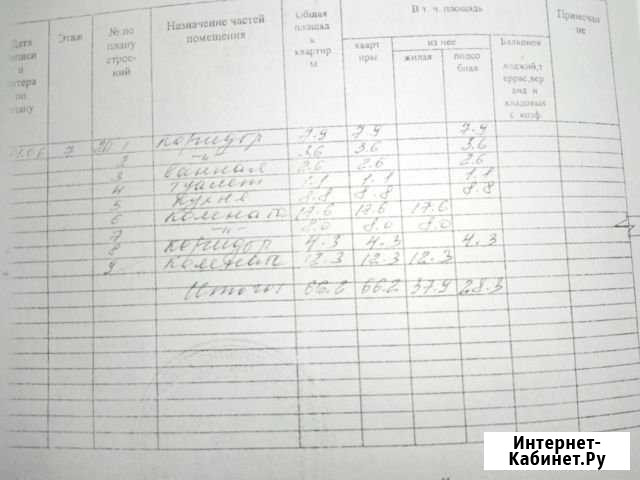 Дата записи и литера по плану
Этаж
№ по плану строений
Назначение частей помещения
Общая площадь квартиры
В т. ч. площадь
Примечание
квартиры
из нее
жилая
подсобная
Балконов, лоджий, террас, веранд и кладовых с коэф.
7 1 коридор 7.9 7.9 7.9
2 —"— 3.6 3.6 3.6
3 ванная 2.6 2.6 2.6
4 туалет 1.1 1.1 1.1
5 кухня 8.8 8.8 8.8
6 комната 17.6 17.6 17.6
7 —"— 8.0 8.0 8.0
8 коридор 4.3 4.3 4.3
9 комната 12.3 12.3 12.3
Итого: 66.2 66.2 37.9 28.3
Интернет-
Кабинет.Ру